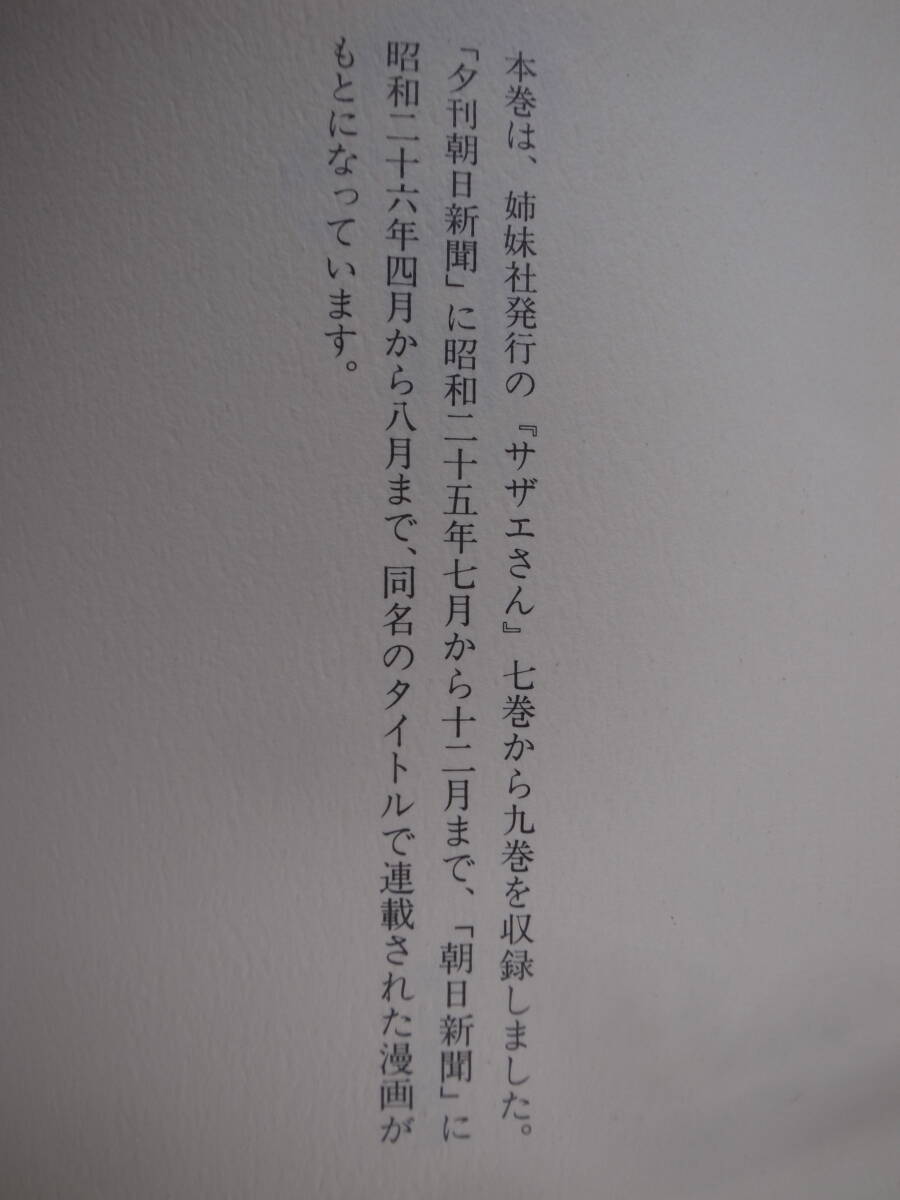 本巻は、姉妹社発行の『サザエさん』七巻から九巻を収録しました。
「夕刊朝日新聞」に昭和二十五年七月から十二月まで、「朝日新聞」に
昭和二十六年四月から八月まで、同名のタイトルで連載された漫画が
もとになっています。